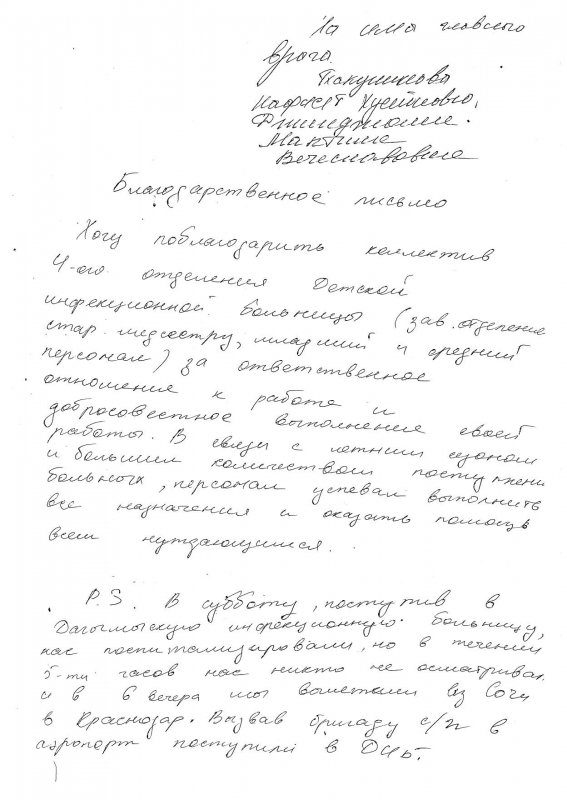 На имя главного
врача
Нафсет
Вечеславовне
Благодарственное письмо
Хочу поблагодарить коллектив
4-ого отделения Детской
инфекционной больницы (зав. отделение
стар. медсестру, младший и средний
персонал) за ответственное
отношение к работе и
добросовестное выполнение своей
работы. В связи с летним сезоном
и большим количеством поступлени
больных, персонал успевал выполнить
все назначения и оказать помощь
всем нуждающимся.
P.S. В субботу, поступив в
Дагомыскую инфекционную больницу,
нас госпитализировали, но в течении
5-ти часов нас никто не осматривал
и в 6 вечера мы вылетели из Сочи
в Краснодар. Вызвав бригаду с/п в
аэропорт поступили в ДИБ.